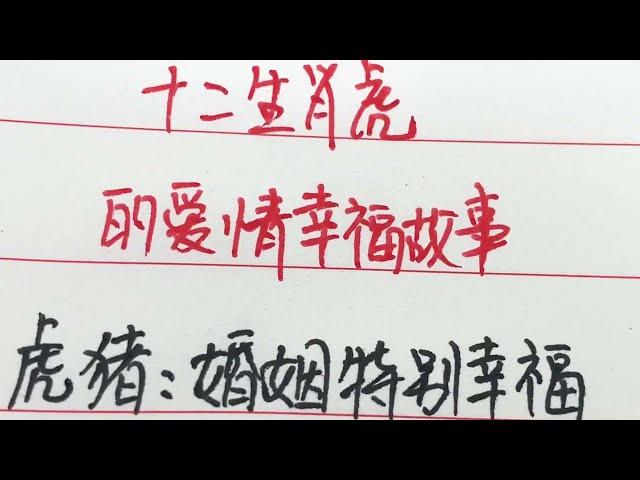 十二生肖虎
的爱情幸福故事
虎猪：婚姻特别幸福